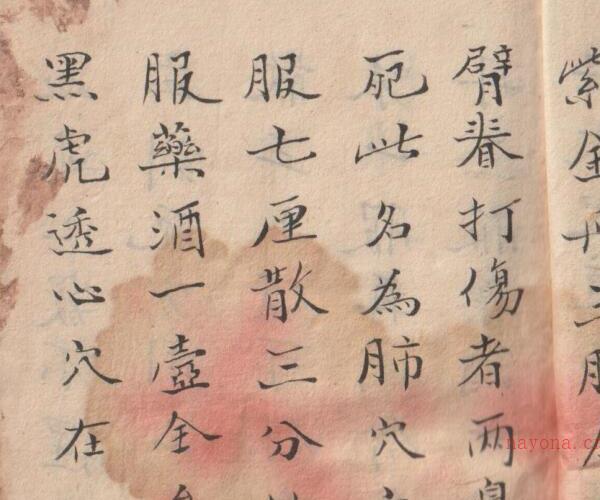 紫金丹三服
臂脊打傷者兩
死此名為肺穴
服七厘散三分
服藥酒一壺全
黑虎透心穴在
nayona.c